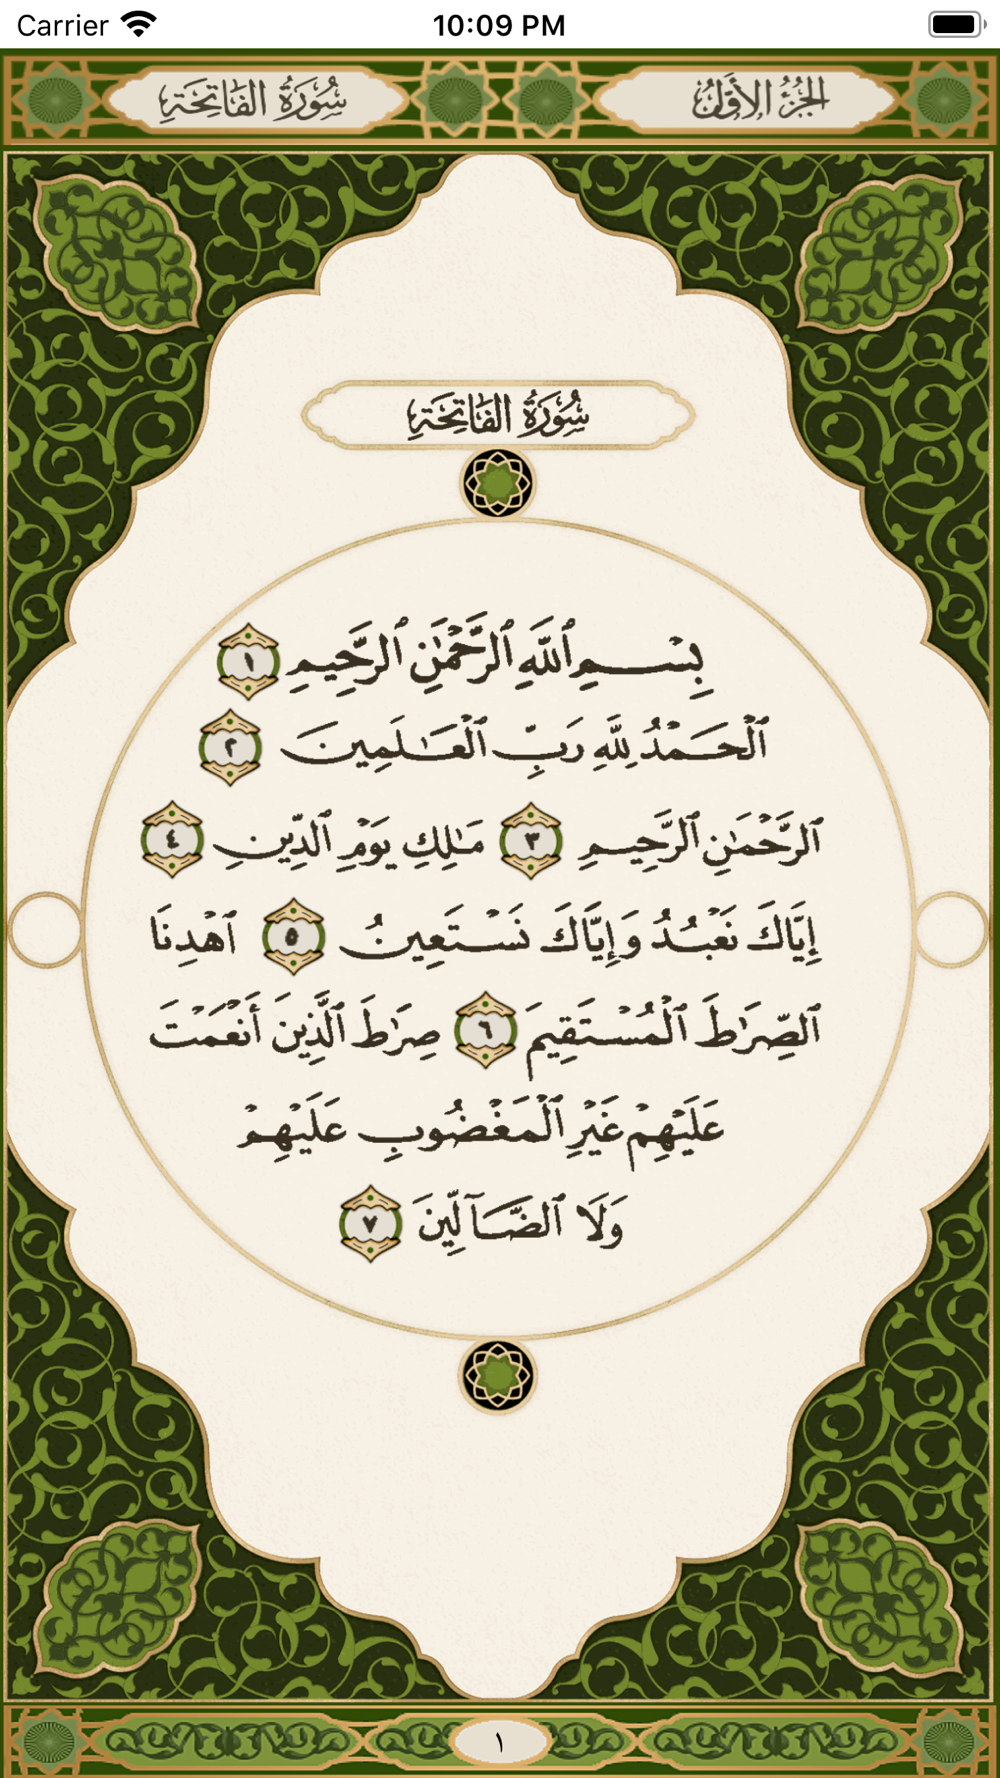 Carrier 10:09 PM
الجُزْءُ الأَوَّلُ سُورَةُ الفَاتِحَةِ
سُورَةُ الفَاتِحَةِ
بِسْمِ ٱللَّهِ ٱلرَّحْمَٰنِ ٱلرَّحِيمِ ١
ٱلْحَمْدُ لِلَّهِ رَبِّ ٱلْعَٰلَمِينَ ٢
ٱلرَّحْمَٰنِ ٱلرَّحِيمِ ٣ مَٰلِكِ يَوْمِ ٱلدِّينِ ٤
إِيَّاكَ نَعْبُدُ وَإِيَّاكَ نَسْتَعِينُ ٥ ٱهْدِنَا
ٱلصِّرَٰطَ ٱلْمُسْتَقِيمَ ٦ صِرَٰطَ ٱلَّذِينَ أَنْعَمْتَ
عَلَيْهِمْ غَيْرِ ٱلْمَغْضُوبِ عَلَيْهِمْ
وَلَا ٱلضَّآلِّينَ ٧
١